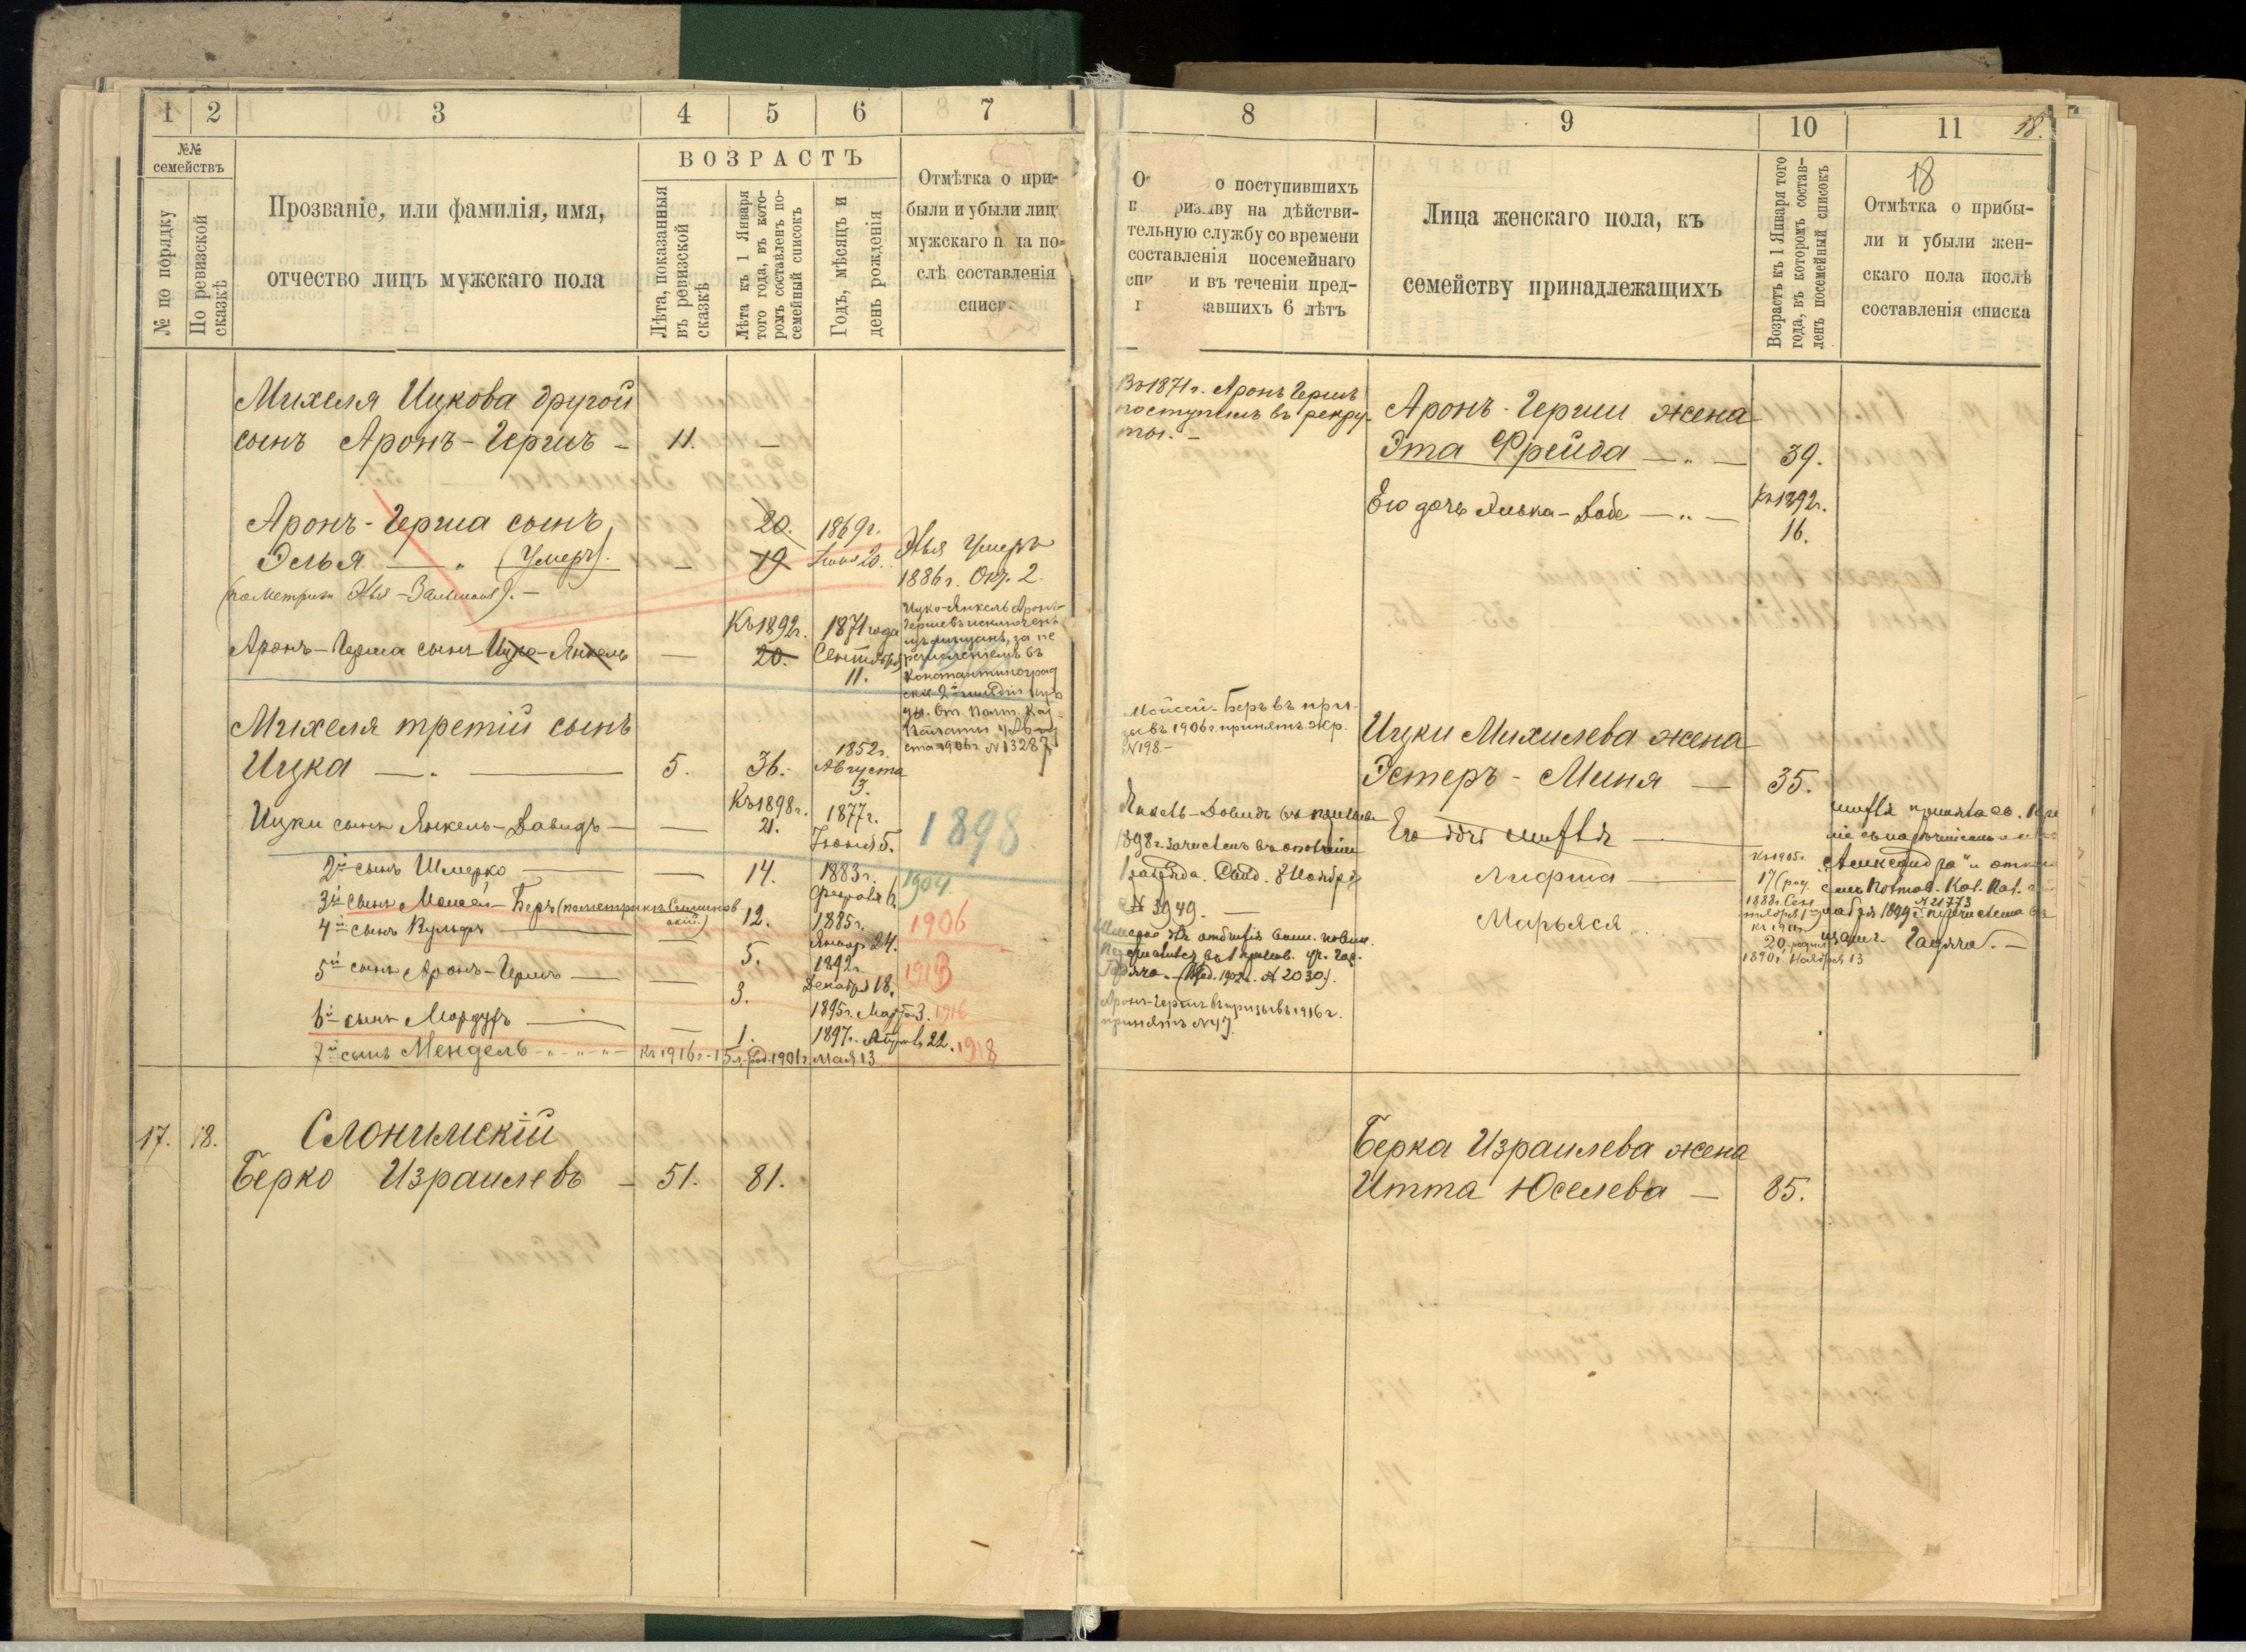 1 2 3 4 5 6 7
№№ семействъ
№ по порядку
По ревизской сказкѣ
Прозваніе, или фамилія, имя,
отчество лицъ мужскаго пола
ВОЗРАСТЪ
Лѣта, показанныя
въ ревизской
сказкѣ
Лѣта къ 1 Января
того года, въ кото-
ромъ составленъ по-
семейный списокъ
Годъ, мѣсяцъ и
день рожденія
Отмѣтка о при-
были и убыли лицъ
мужскаго по-
слѣ составленія
Михеля Ицкова другой
сынъ Аронъ-Гершъ — 11. —
Аронъ-Герша сынъ 20. 1869г.
Элья — " (Умеръ). — 19 20.
Элья Умеръ
1886г. Окт. 2.
(по метрики Элья-Залманъ). —
Аронъ-Герша сынъ Ицко-Янкель — Къ 1892г. 20. 1871 года Сентября 11.
Ицко-Янкель Аронъ-
Гершевъ исключенъ
изъ мещанъ, за пе
речисленіемъ въ
Константиноград
скіе 2й гильдіи куп
цы. От. Полт. Каз.
Палаты 4 Авгу
ста 1906г. №13287
Михеля третій сынъ
Ицка — " — 5. 36. 1852г. Августа 3.
Ицки сынъ Янкель-Давидъ — — Къ 1898г. 21. 1877г. Іюня 5. 1898
2й сынъ Шмерко — — 14. 1883г. Февраля 6. 1904
3й сынъ Моисей-Беръ (по метрикѣ Слонимов
скій.) 12. 1885г. Январ 24. 1906
4й сынъ Вульфъ — — 5. 1892г. Декабря 18. 1913
5й сынъ Аронъ-Гершъ — — 3. 1895г. Марта 3. 1916
6й сынъ Мордухъ — — 1. 1897г. 22. 1918
7й сынъ Мендель — Къ 1916г. - 15 л. род. 1901г. мая 13
17. 18. Слонимскій
Берко Израилевъ — 51. 81.
8 9 10 11 18.
18
о поступившихъ
на дѣйстви-
тельную службу со времени
составленія посемейнаго
и въ теченіи пред-
6 лѣтъ
Лица женскаго пола, къ
семейству принадлежащихъ
Возрастъ къ 1 Января того
года, въ которомъ состав-
ленъ посемейный списокъ
Отмѣтка о прибы-
ли и убыли жен-
скаго пола послѣ
составленія списка
Въ 1871г. Аронъ Гершъ
поступилъ въ рекру-
ты. —
Аронъ-Герши жена
Эта Фрейда — " — 39.
Его дочь Либка-Добе — " — Къ 1892г.
16.
Мойсей-Беръ въ при-
зывъ 1906г. принятъ жр.
№198 —
Ицки Михилева жена
Эстеръ-Миня — 35.
Янкель-Довидъ въ призывъ
1898г. зачисленъ въ ополченіе
1 разряда. Свид. 8 Ноября
№ 3949. —
Его дочь —
Лифша — Къ 1905г.
17 (род.
1888г. Сен
тября 1
Марьяся Къ 1911г.
20 родил
1890г. Ноября 13
№ 21773
Гадяча. —
№ 2030).
Аронъ-Гершъ въ призывъ 1916г.
принятъ №47.
Берка Израилева жена
Итта Юселева — 85.